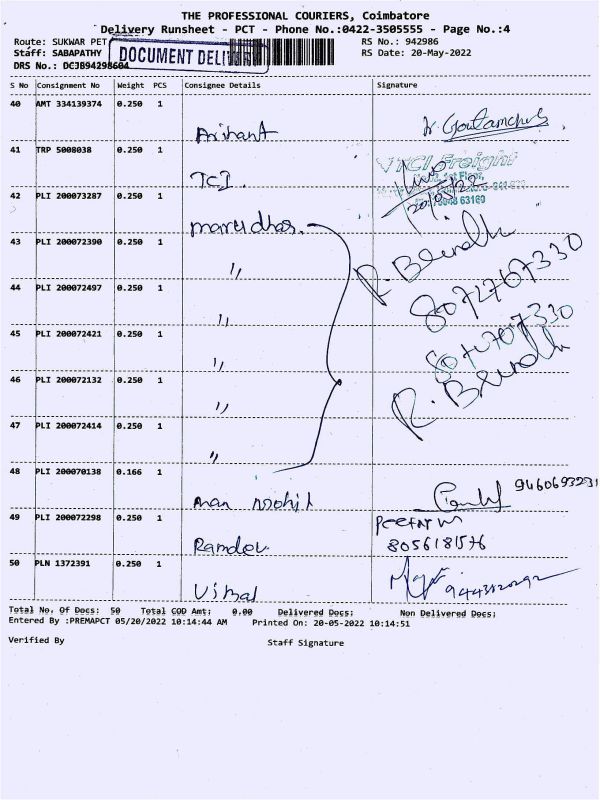 THE PROFESSIONAL COURIERS, Coimbatore
Delivery Runsheet - PCT - Phone No.:0422-3505555 - Page No.:4
Route: SUKWAR PET
RS No.: 942986
Staff: SABAPATHY
DOCUMENT DELI
RS Date: 20-May-2022
DRS No.: DCJB94298604
S No Consignment No Weight PCS Consignee Details Signature
40 AMT 334139374 0.250 1
Arihant
41 TRP 5008038 0.250 1
VTCI Freight
1st Floor,
TCI.
42 PLI 200073287 0.250 1
20/5/22
63169
marudhar.
43 PLI 200072390 0.250 1
R. Brindha
"
8072767330
44 PLI 200072497 0.250 1
"
45 PLI 200072421 0.250 1
"
46 PLI 200072132 0.250 1
R. Brindha
"
47 PLI 200072414 0.250 1
"
48 PLI 200070138 0.166 1
9460693231
49 PLI 200072298 0.250 1
Ramdev
8056181576
50 PLN 1372391 0.250 1
Vimal
Total No. Of Docs: 50 Total COD Amt: 0.00 Delivered Docs: Non Delivered Docs:
Entered By :PREMAPCT 05/20/2022 10:14:44 AM Printed On: 20-05-2022 10:14:51
Verified By Staff Signature